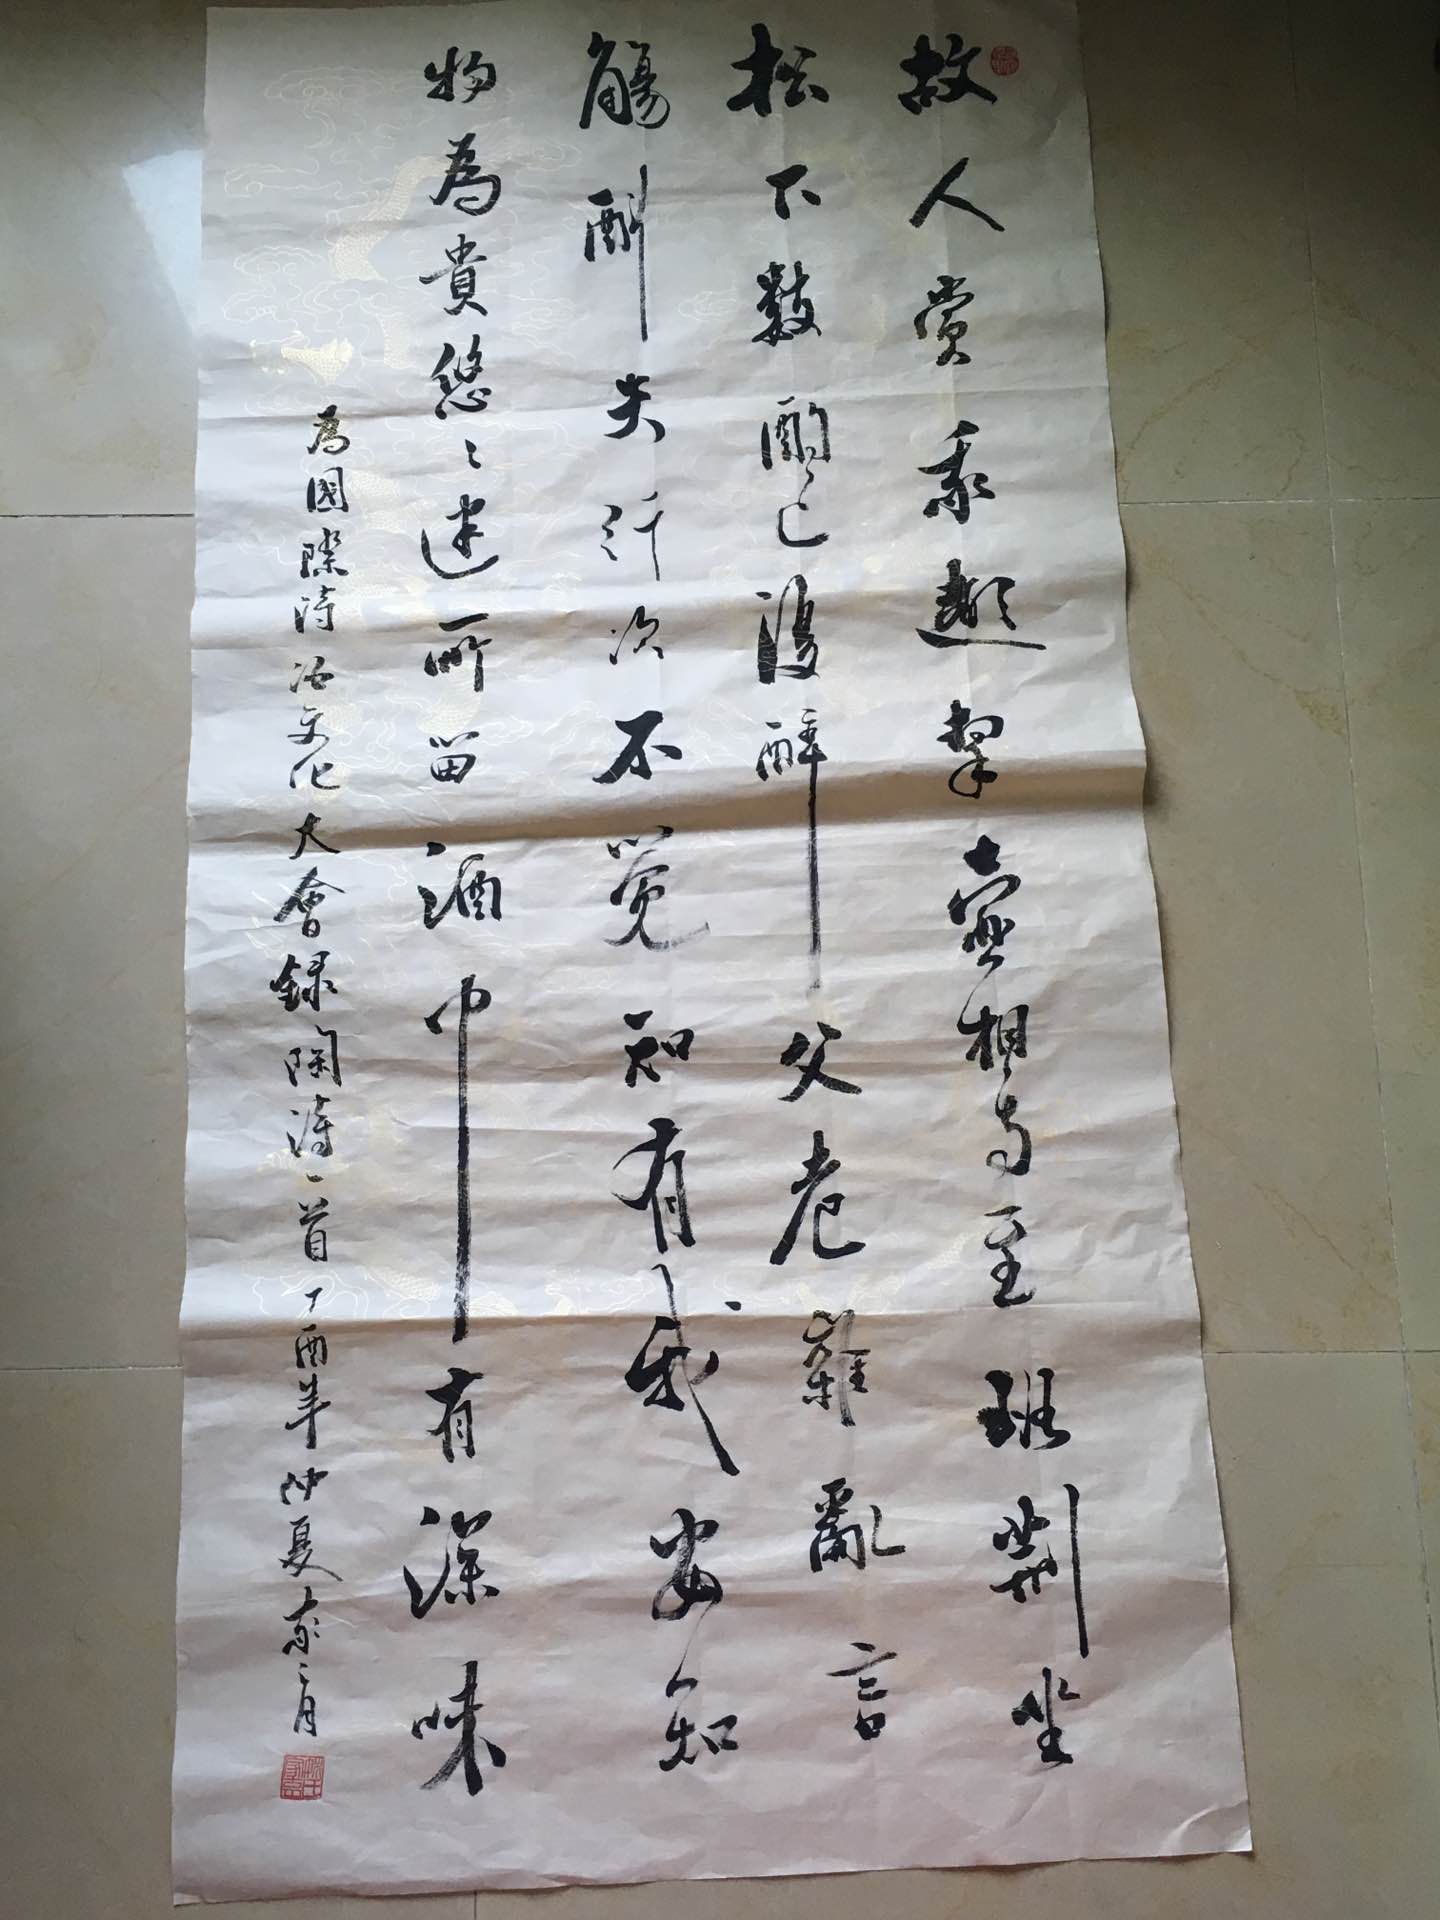 故人賞我趣挈壺相與至班荆坐
松下數酌已復醉父老雜亂言
觴酌失行次不覺知有我安知
物為貴悠悠迷所留酒中有深味
為國際詩酒文化大會録陶詩一首丁酉年仲夏家月